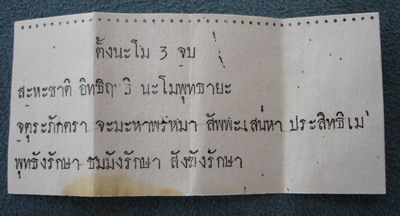 ตั้งนะโม 3 จบ
สะหะชาติ อิทธิฤทธิ นะโมพุทธายะ
จตุระภักตรา จะมะหาพรหมา สัพพะเสน่หา ประสิทธิเม
พุทธังรักษา ธัมมังรักษา สังฆังรักษา